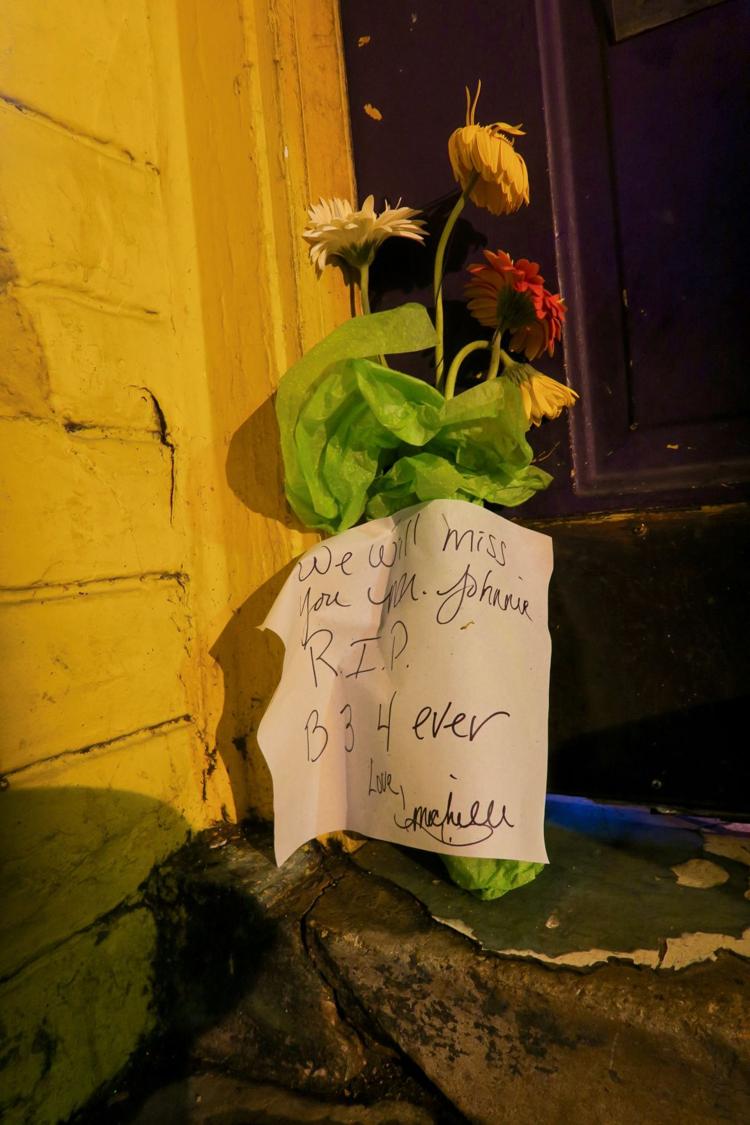 We will miss
you Mr. Johnnie
R.I.P.
B 3 4 ever
Love,
Michelle